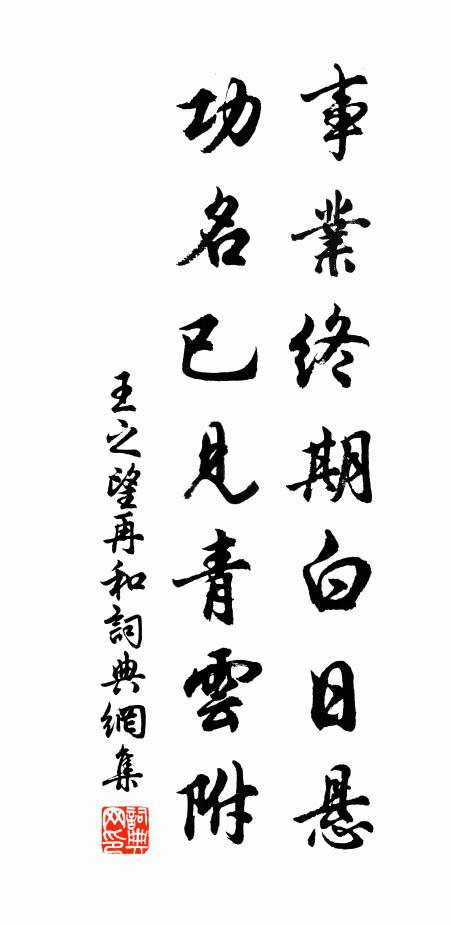 事業終期白日悬
功名已見青雲附
王之望再和詞典網集
詞典网印